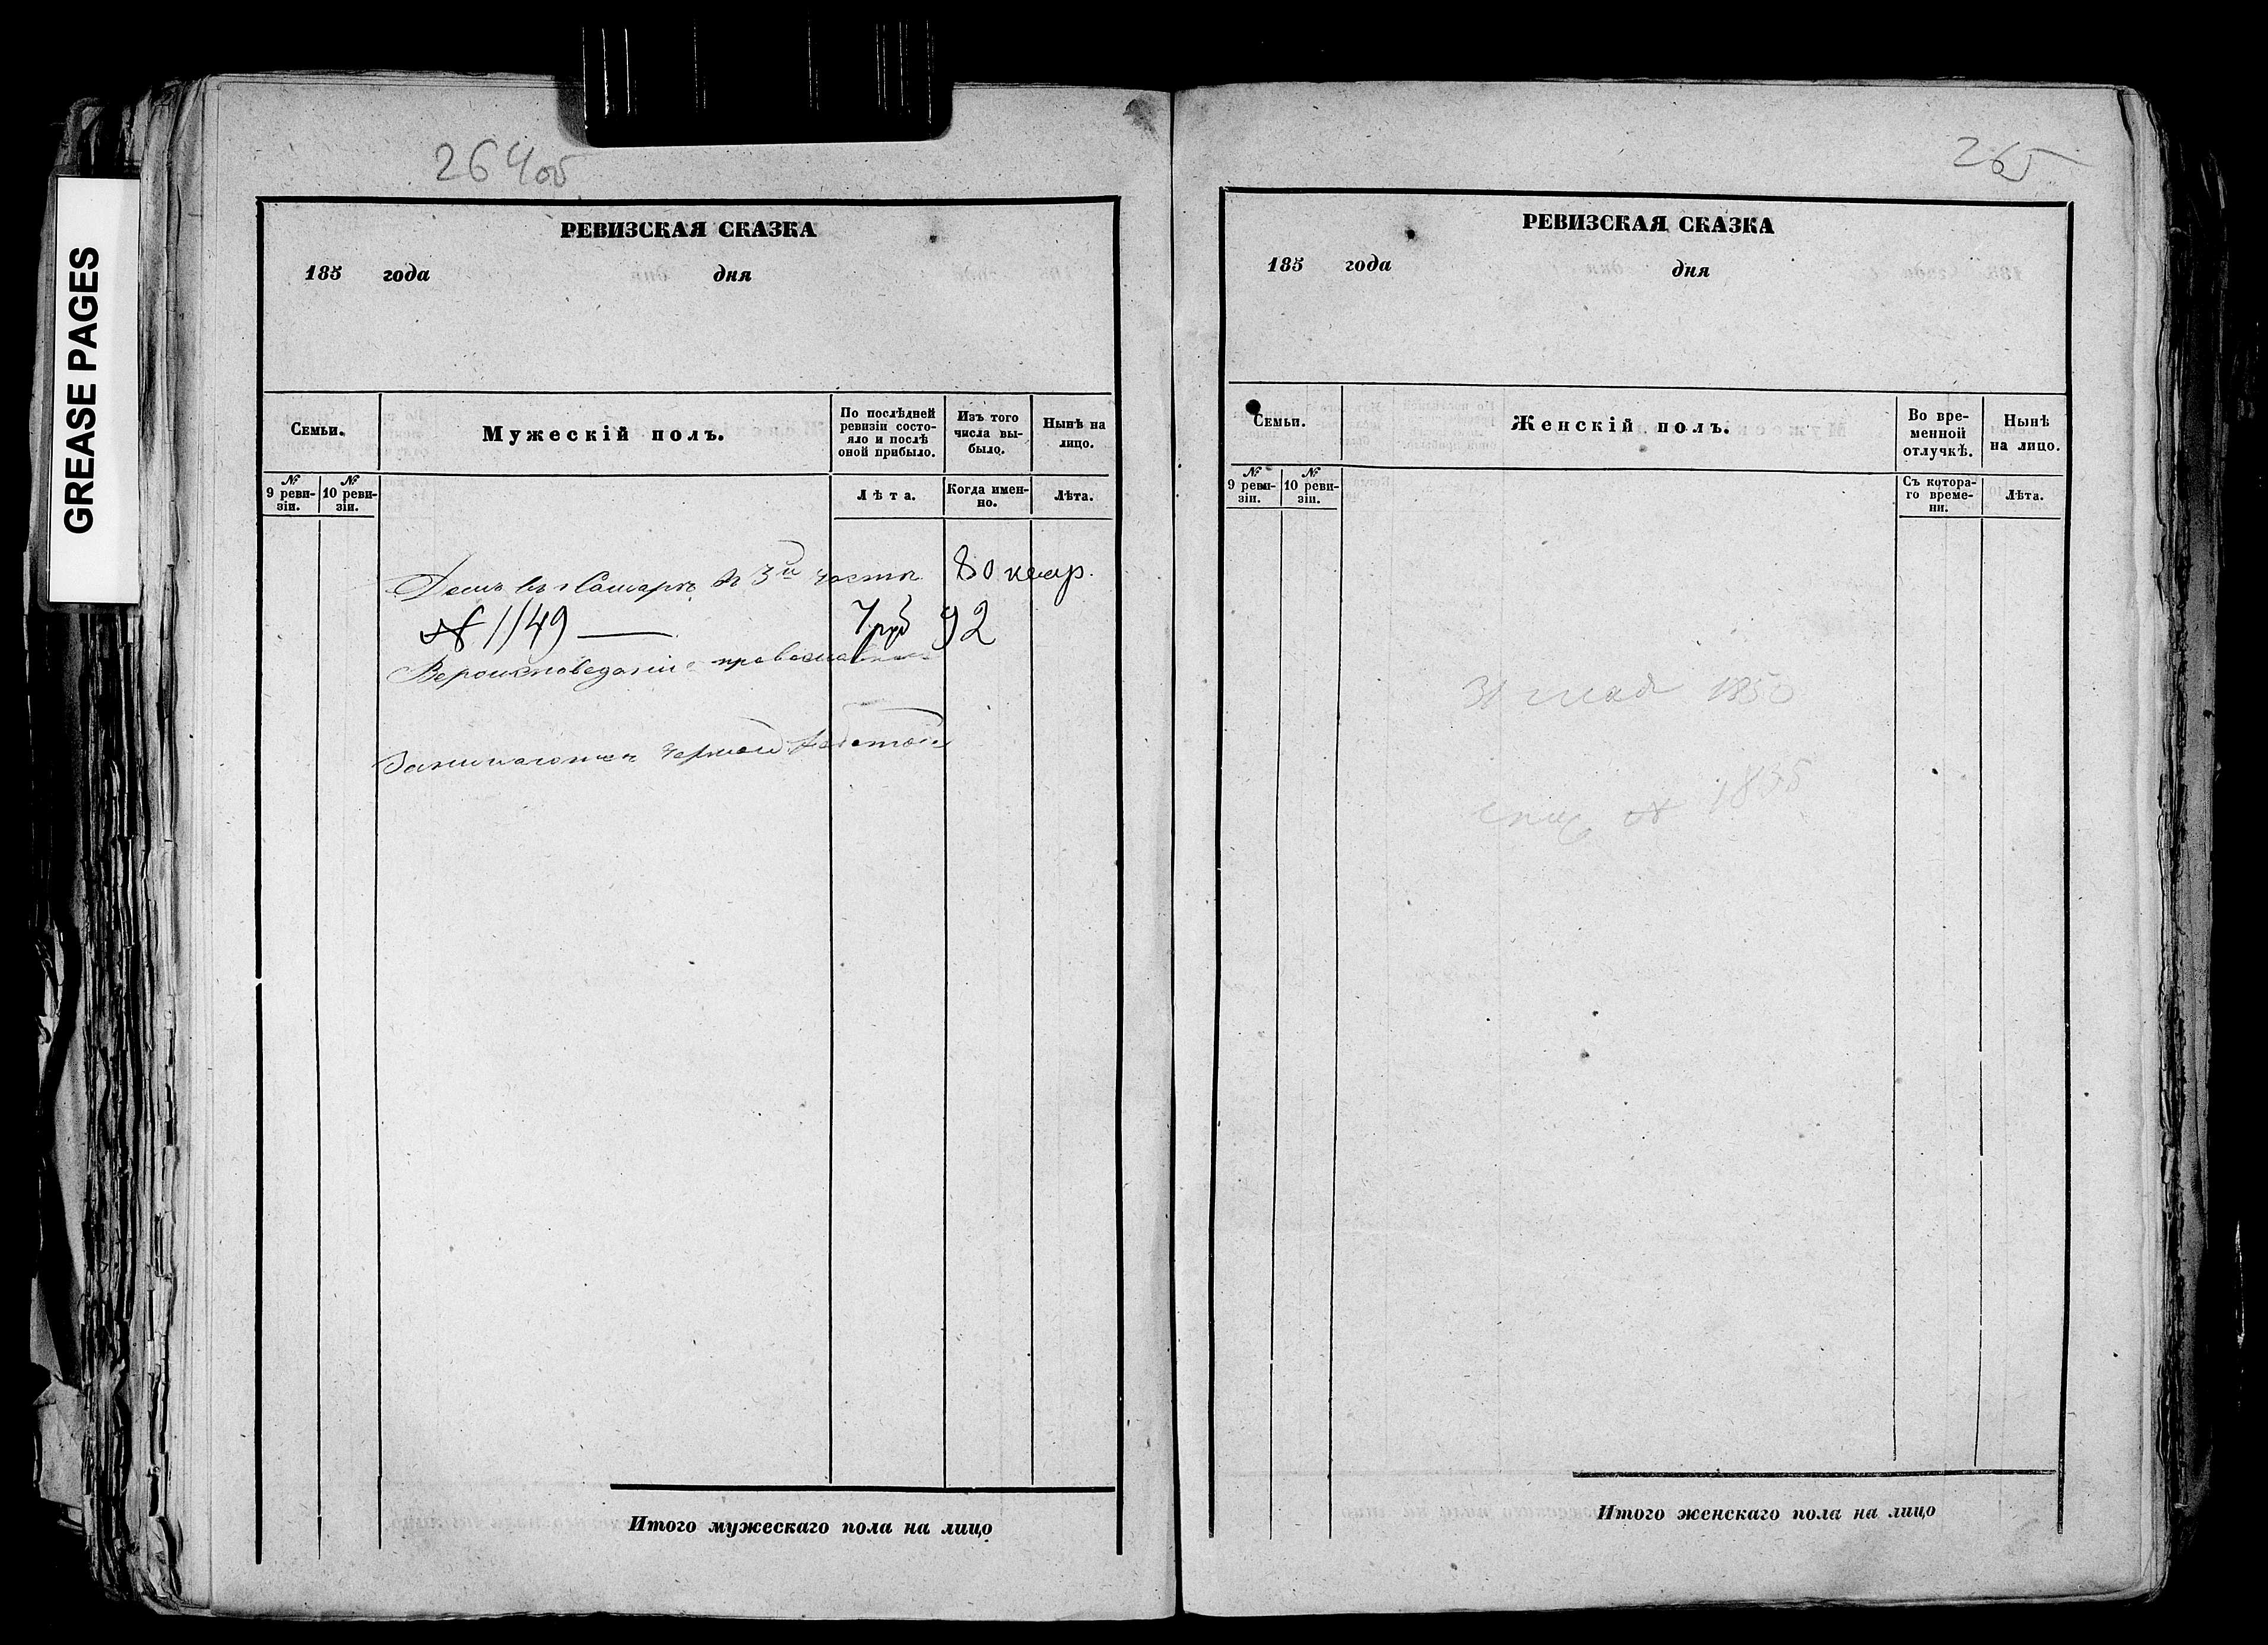 GREASE PAGES
264об
РЕВИЗСКАЯ СКАЗКА
185 года дня
Семьи.
Мужескій полъ.
По послѣдней ревизіи состояло и послѣ оной прибыло.
Изъ того числа выбыло.
Нынѣ на лицо.
№ 9 ревизіи.
№ 10 ревизіи.
Лѣта.
Когда именно.
Лѣта.
Домъ въ г Самаре въ 3й части 80 квар.
№ 1149 — 7 руб 92
Вероисповедание православное
Занимаются черной работой
Итого мужескаго пола на лицо
265
РЕВИЗСКАЯ СКАЗКА
185 года дня
Семьи.
Женскій полъ.
Во временной отлучкѣ.
Нынѣ на лицо.
№ 9 ревизіи.
№ 10 ревизіи.
Съ котораго времени.
Лѣта.
31 мая 1850
№ 1835
Итого женскаго пола на лицо